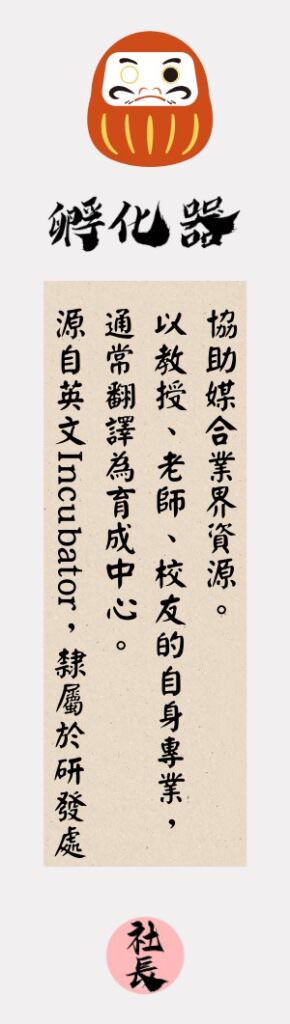 孵化器
源自英文Incubator，隸屬於研發處
通常翻譯為育成中心。
以教授、老師、校友的自身專業，
協助媒合業界資源。
社長